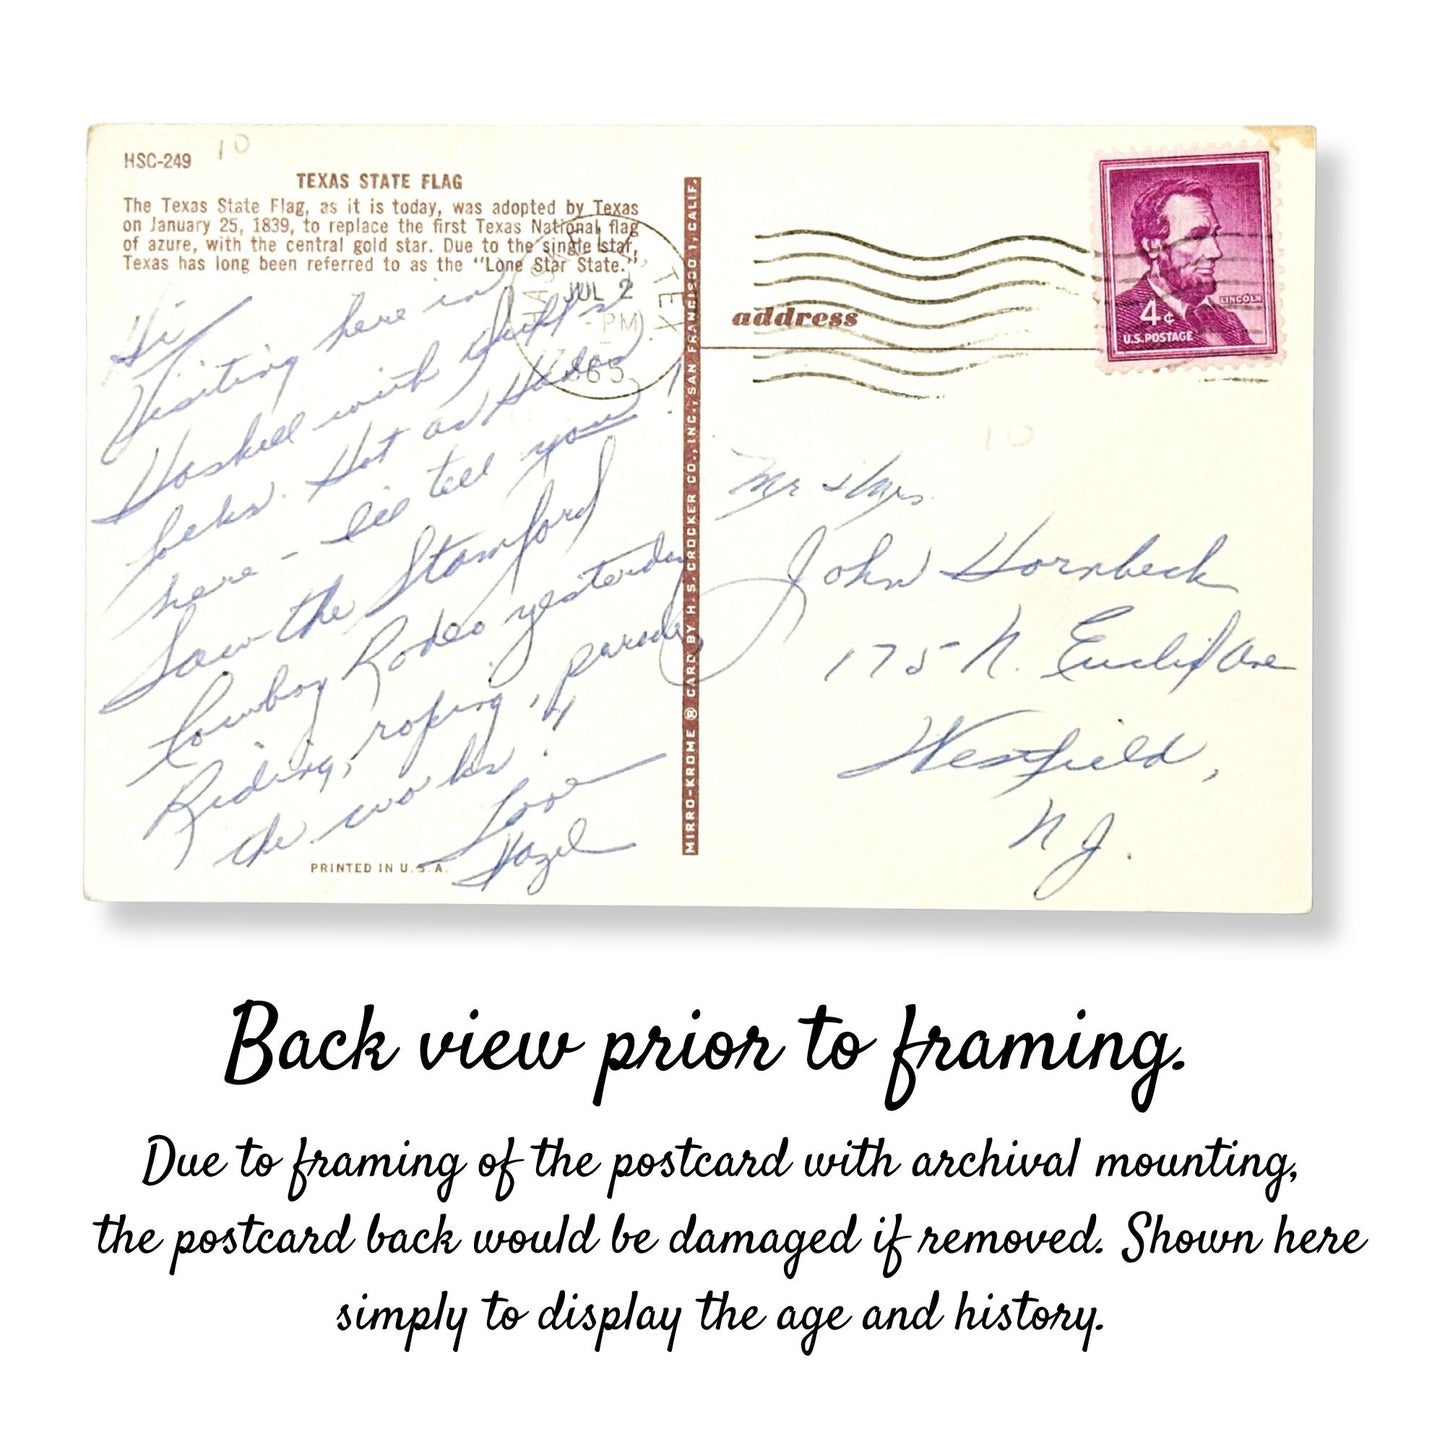 HSC-249
10
TEXAS STATE FLAG
The Texas State Flag, as it is today, was adopted by Texas
on January 25, 1839, to replace the first Texas National flag
of azure, with the central gold star. Due to the single star,
Texas has long been referred to as the "Lone Star State."
Hi
Visiting here in
Haskell with
folks. Hot as Hades
here - I'll tell you!
Saw the Stamford
Cowboy Rodeo yesterday
Riding, roping, parade,
the works!
Love
Hazel
PRINTED IN U.S.A.
MIRRO-KROME ® CARD BY H. S. CROCKER CO., INC., SAN FRANCISCO 1, CALIF.
TEX.
JUL 2
PM
1965
address
LINCOLN
4¢
U.S. POSTAGE
10
Mr & Mrs.
John Hornbeck
175 N. Euclid Ave
Westfield,
N.J.
Back view prior to framing.
Due to framing of the postcard with archival mounting,
the postcard back would be damaged if removed. Shown here
simply to display the age and history.